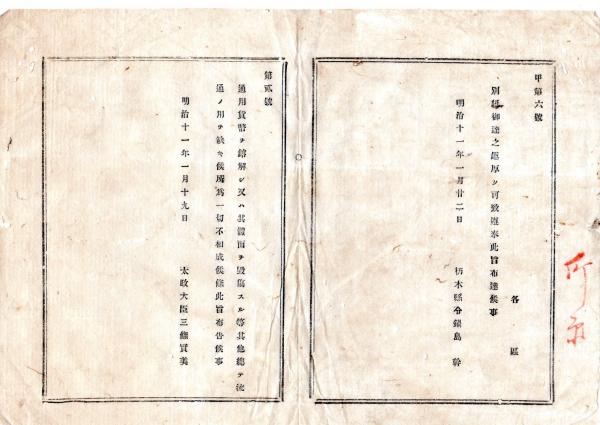 甲第六號
各區
別紙御達之趣厚ク可致遵奉此旨布達候事
明治十一年一月廿二日
栃木縣令鍋島 幹
第貳號
通用貨幣ヲ鎔解シ又ハ其體面ヲ毀傷スル等其他總テ流
通ノ用ヲ缺キ候所爲一切不相成候條此旨布告候事
明治十一年一月十九日
太政大臣三條實美